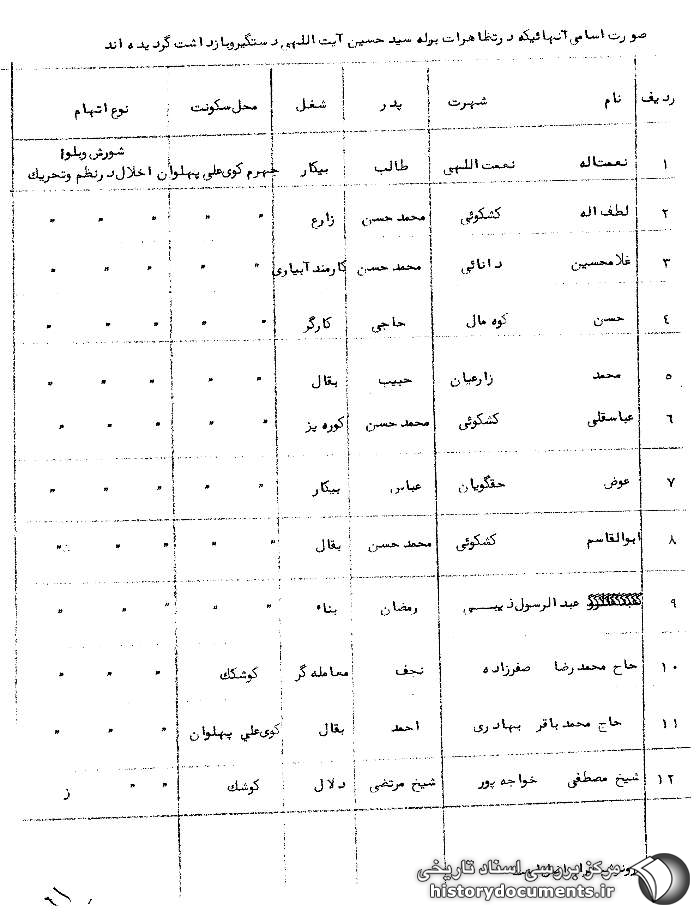 صورت اسامی آنهائیکه درتظاهرات بوله سید حسین آیت اللهی دستگیروبازداشت گردیده اند
ردیف نام شهرت پدر شغل محل سکونت نوع اتهام
شورش وبلوا
۱ نعمت اله نعمت اللهی طالب بیکار جهرم کوی علی پهلوان اخلال درنظم وتحریک
۲ لطف اله کشکوئی محمد حسن زارع " " " " "
۳ غلامحسین دانائی محمد حسن کارمند آبیاری " " " " "
۴ حسن کوه مال حاجی کارگر " " " " "
۵ محمد زارعیان حبیب بقال " " " " "
۶ عباسقلی کشکوئی محمد حسن کوره پز " " " " "
۷ عوض حقگویان عباس بیکار " " " " "
۸ ابوالقاسم کشکوئی محمد حسن بقال " " " " "
۹ عبدالرسول رمضان بناء " " " " "
۱۰ حاج محمدرضا صفرزاده نجف معامله گر کوشکک " " "
۱۱ حاج محمد باقر بهادری احمد بقال کوی علی پهلوان " " "
۱۲ شیخ مصطفی خواجه پور شیخ مرتضی دلال کوشک " " ز
مرکز بررسی اسناد تاریخی
historydocuments.ir